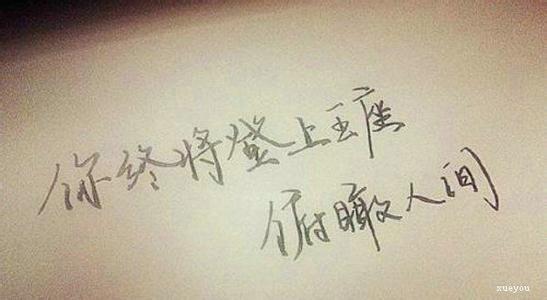 你终将登上王座
俯瞰人间
xueyou